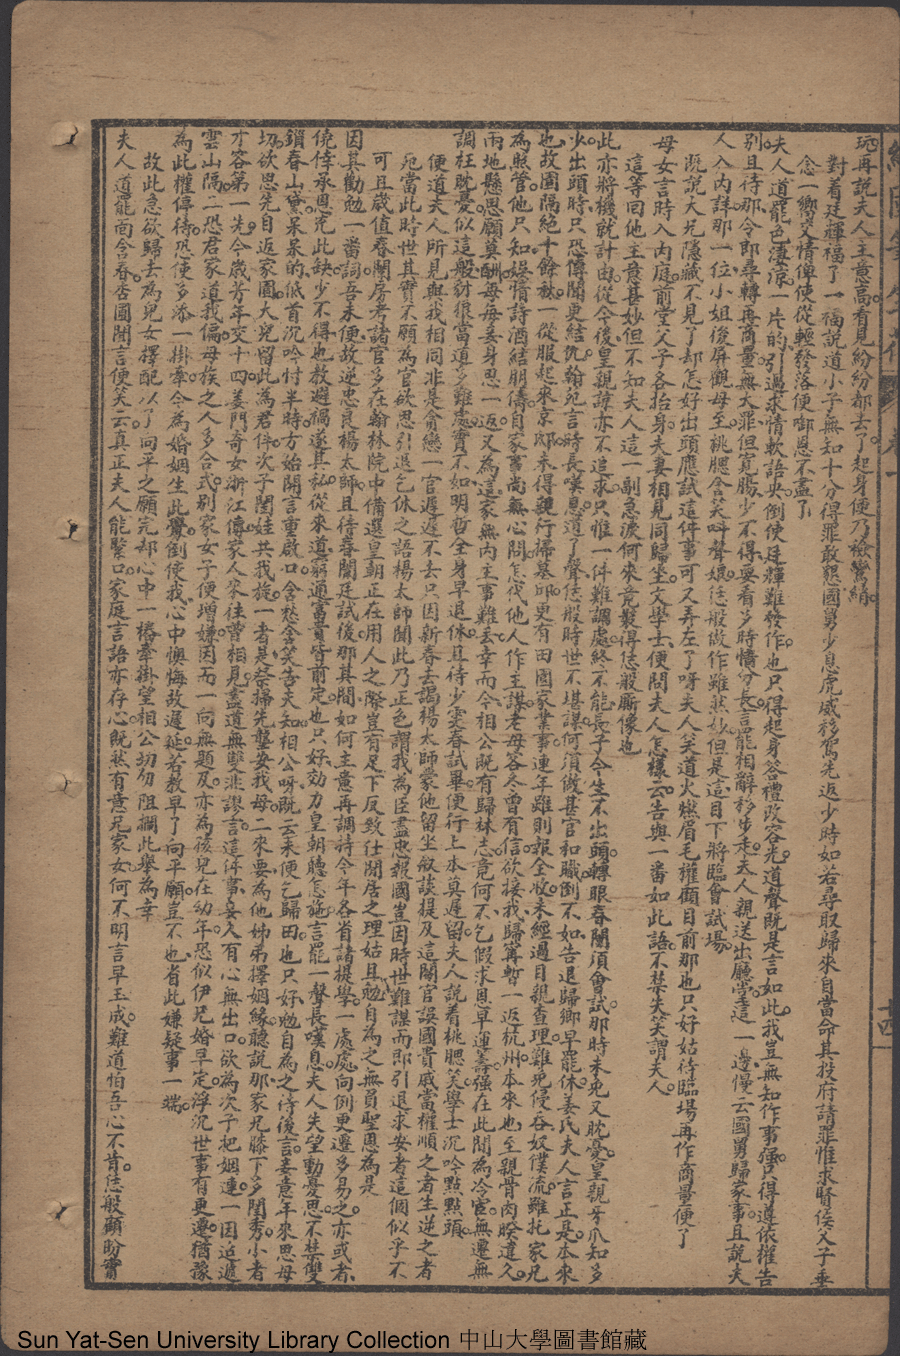 玩再說夫人主意高看見紛紛都去了起身便乃檢鸞綃
對着廷輝福了一福說道小子無知十分得罪敢懇國舅少息虎威移駕先返少時如若尋取歸來自當命其投府請罪惟求賢侯父子垂
念一鄉又情俾使從輕發落便啣恩不盡了
夫人道罷色淒凉一片的引過求情軟語央倒使廷輝難發作也只得起身答禮改容光道聲既是言如此我豈無知作事強只得遵依權告
別且待那令即尋轉再商量無大罪但寬腸少不得要看多時情分長言罷相辭移步走夫人親送出廳堂這一邊慢云國舅歸家事且說夫
人入內詳那一位小姐後屏觀母至桃腮含笑呌聲娘恁般做作雖然妙但是這目下將臨會試場
既說大兄隱藏不見了却怎好出頭應試這件事可又弄左了呀夫人笑道火燃眉毛權顧目前那也只好姑待臨場再作商量便了
母女言時入內庭前堂父子各抬身夫妻相見同歸坐文學士便問夫人怎樣云告與一番如此語不禁失笑謂夫人
這等回他主意甚妙但不知夫人這一副急淚何來竟裝得恁般厮像也
此亦將機就計由從今後皇親諱亦不追求只惟一件難調處終不能長子今生不出頭轉眼春闈須會試那時未免又耽憂皇親牙爪知多
少出頭時只恐傳聞更結仇翰苑言時長嘆息道了聲恁般時世不堪謀何須做甚官和職倒不如告退歸鄉早罷休姜氏夫人言正是本來
也故園隔絕十餘秋一從服起來京邸未得親行掃墓邱更有田園家業事連年雖則報全收未經過目親查理難免侵吞奴僕流雖托家兄
為照管他只知娛情詩酒結朋儔自家事尚無心問怎代他人作主謀老母客冬曾有信欲接我歸寧暫一返杭州本來也至親骨肉睽違久
兩地懸思願莫酬每每妾身思一返又為這家無內主事難丟幸而今相公既有歸林志竟何不乞假求恩早運籌強在此閒為冷宦無遷無
調枉耽憂似這般豺狼當道多難處實不如明哲全身早退休且待少雯春試畢便行上本莫遲留夫人說着桃腮笑學士沉吟點點頭
便道夫人所見與我相同非是貪戀一官遲遲不去只因新春去謁楊太師蒙他留坐叙談提及這閹官誤國貴戚當權順之者生逆之者
死當此時世其實不願為官欲思引退乞休之語楊太師聞此乃正色謂我為臣盡忠報國豈因時世難謀而即引退求安者這個似乎不
可且歲值春闈房考諸官多在翰林院中備選皇朝正在用人之際豈有足下反致仕閒居之理姑且勉自為之無負聖恩為是
因其勸勉一番詞吾未便故逆忠良楊太師且待春闈廷試後那其間如何主意再調持今年各省諸提學一處處向倒更遷多易之亦或者
僥倖承恩充此缺少不得也教避禍遂其私從來道窮通富貴皆前定也只好効力皇朝聽怎施言罷一聲長嘆息夫人失望動憂思不禁雙
鎖春山黛呆呆的低首沉吟忖半時方始開言重啟口含愁含笑告夫知相公呀既云未便乞歸田也只好勉自為之待後言妾意年來思母
切欲思先自返家園大兒留此為君伴次子閨娃共我旋一者是祭掃先塋安我母二來要為他姊弟擇姻緣聽說那家兄膝下多閨秀小者
才容第一先今歲芳年交十四姜門奇女浙江傳家人來往曾相見盡道無雙非謬言這件事妾久有心無出口欲為次子把姻連一因迢遞
雲山隔二恐君家道我偏母族之人多合式別家女子便增嫌因而一向無題及亦為孩兒在幼年恐似伊兄婚早定浮沉世事有更遷猶豫
為此權停待恐使多添一掛牽今為婚姻生此釁倒使我心中懊悔故遲延若教早了向平願豈不也省此嫌疑事一端
故此急欲歸去為兒女擇配以了向平之願完却心中一樁牽掛望相公切勿阻攔此舉為幸
夫人道罷面含春杏圃聞言便笑云真正夫人能緊口家庭言語亦存心既然有意兄家女何不明言早玉成難道怕吾心不肯恁般顧盼實
卷一
十四
Sun Yat-Sen University Library Collection 中山大學圖書館藏